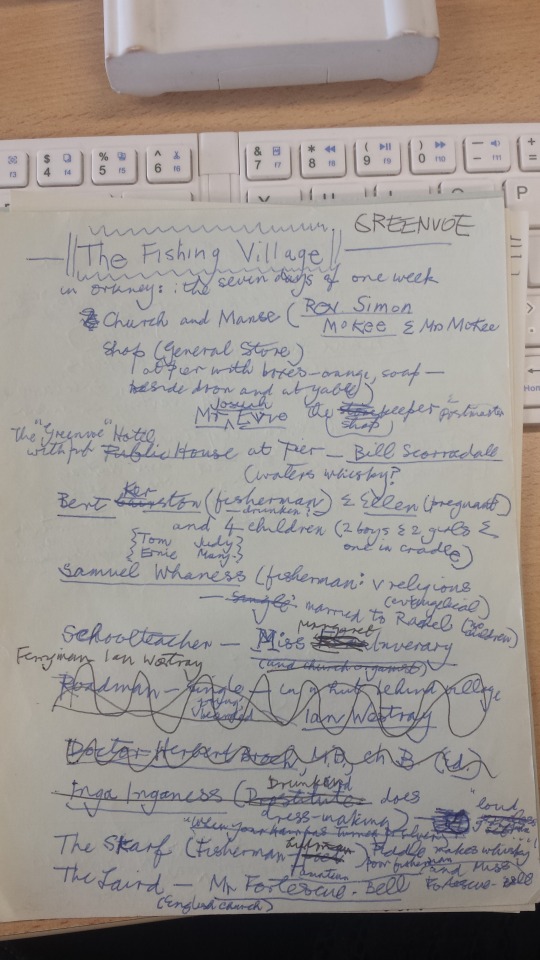 $ 4 f4
% 5 f5
^ 6 f6
& 7 f7
* 8 f8
( 9 f9
) 0 f10
- f11
+ =
P
GREENVOE
The Fishing Village
in Orkney: the seven days of one week
Church and Manse (Rev. Simon
McKee & Mrs McKee
Shop (General Store)
at pier with boxes - orange, soap -
beside door and at gable)
Mr Josiah Evie the keeper & postmaster
shop
The "Greenvoe" Hotel
with pb Public House at Pier - Bill Scorradale
(waters whisky?
Bert Kerston (fisherman) & Ellen (pregnant)
- drunken? -
and 4 children (2 boys & 2 girls &
one in cradle)
{Tom Judy}
{Ernie Mary}
Samuel Whaness (fisherman: v religious
(evangelical)
- single married to Rachel (no
children)
Schoolteacher - Miss Margaret Inverary
(and church organist)
Ferryman Ian Westray
Roadman - single - in a hut behind village
young,
bearded Ian Westray
Doctor Herbert Broch, M.B., Ch. B. (Ed.)
Inga Inganess (Prostitute does
Drunkard
dress-making) - "loud
"When your hair has turned to silver"
The Skarf (Fisherman makes whisky
poor fisherman
The Laird - Mr Fortescue-Bell and Miss
Fortescue-Bell
(English church)